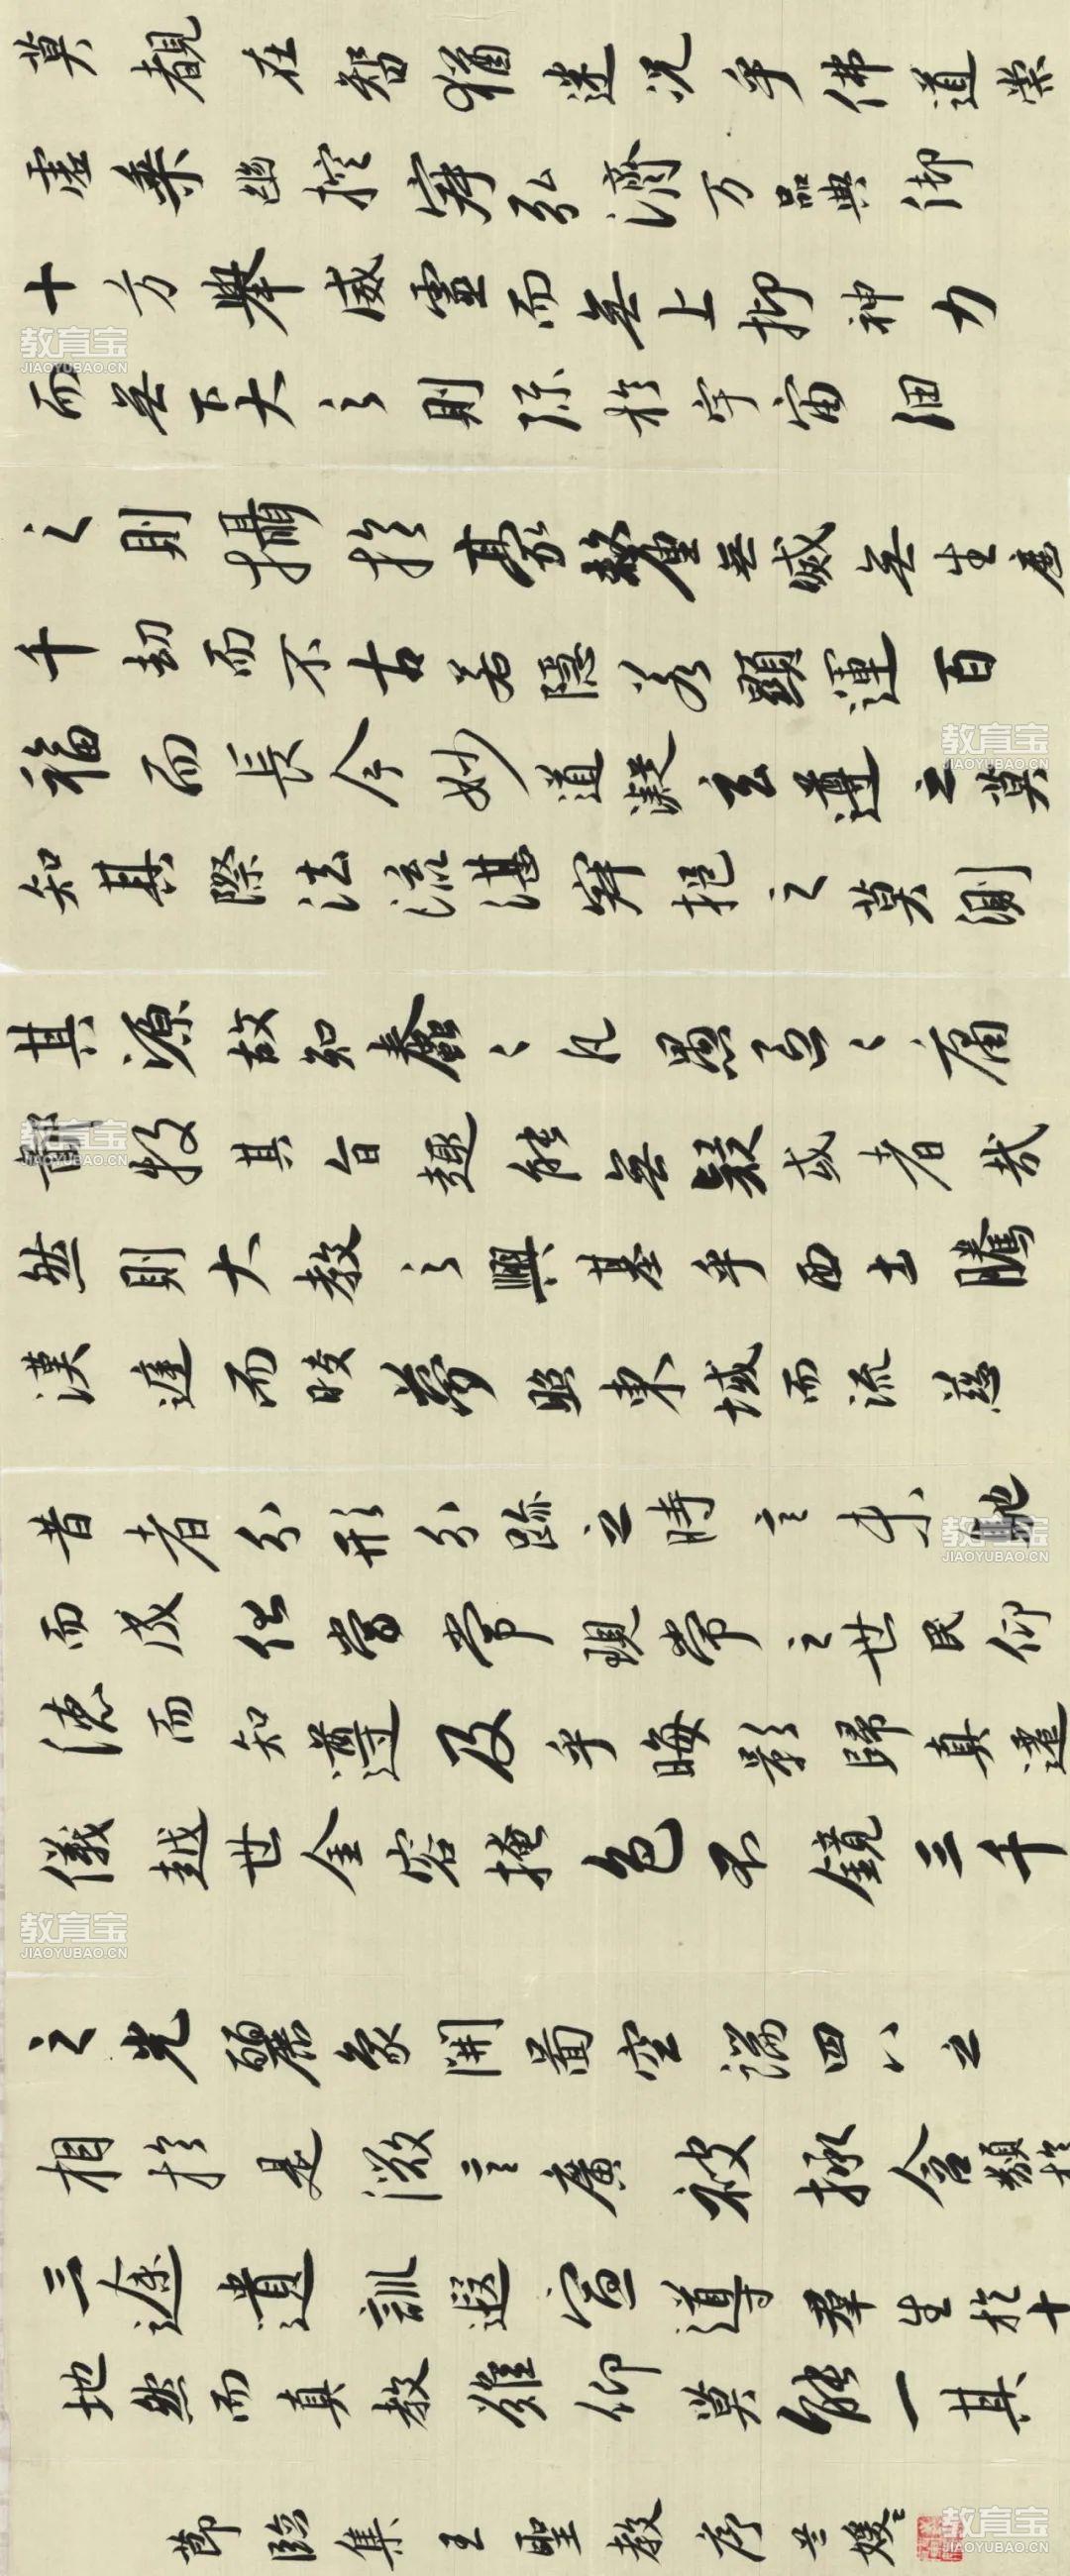 莫覩在智猶迷況乎佛道崇
虛乘幽控寂弘濟万品典御
十方舉威靈而無上抑神力
而無下大之則弥於宇宙細
之則攝於豪釐無滅無生歷
千劫而不古若隱若顯運百
福而長今妙道凝玄遵之莫
知其際法流湛寂挹之莫測
其源故知蠢々凡愚區々庸
鄙投其旨趣能無疑或者哉
然則大教之興基乎西土騰
漢庭而皎夢照東域而流慈
昔者分形分跡之時言未馳
而成化當常現常之世民仰
德而知遵及乎晦影歸真遷
儀越世金容掩色不鏡三千
之光麗象開圖空端四八之
相於是微言廣被拯含類於
三途遺訓遐宣導群生於十
地然而真教難仰莫能一其
節臨集王聖教序
教育宝
JIAOYUBAO.CN
教育宝
JIAOYUBAO.CN
教育宝
JIAOYUBAO.CN
教育宝
JIAOYUBAO.CN
教育宝
JIAOYUBAO.CN
教育宝
JIAOYUBAO.CN